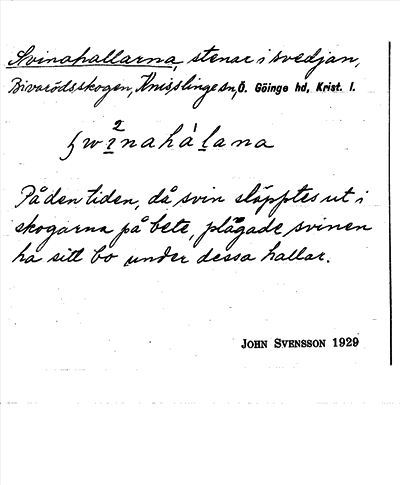 Svinahallarna, stenar i svedjan,
Bivarödsskogen, Knisslinge sn, Ö. Göinge hd, Krist. l.
2
ʃwi̲nahàl̲ana
På den tiden, då svin släpptes ut i
skogarna på bete, plägade svinen
ha sitt bo under dessa hallar.
JOHN SVENSSON 1929